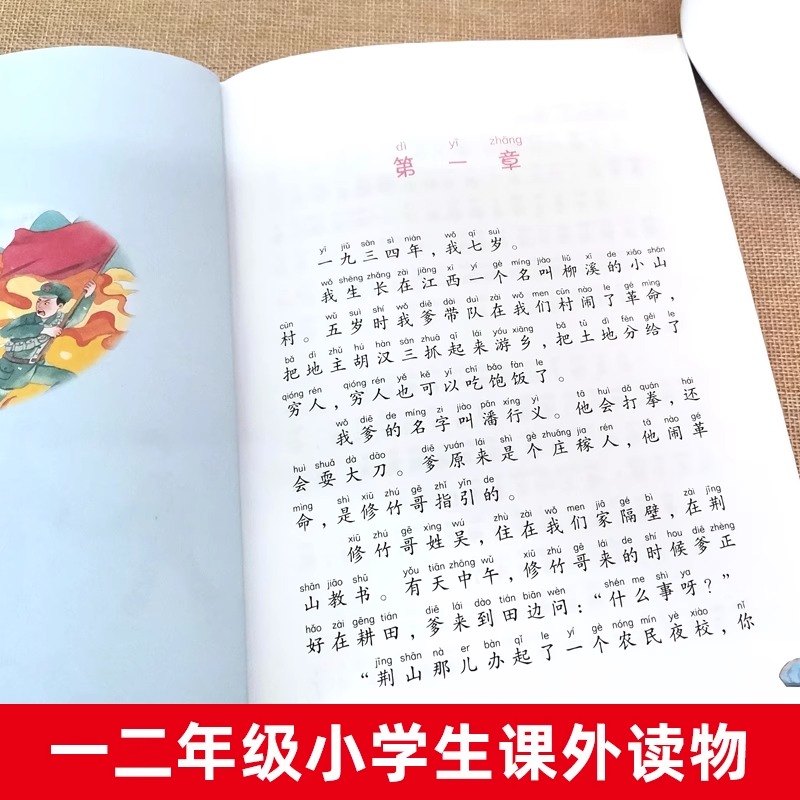 dì yī zhāng
第一章
yī jiǔ sān sì nián wǒ qī suì
一九三四年，我七岁。
wǒ shēng zhǎng zài jiāng xī yí gè míng jiào liǔ xī de xiǎo shān
我生长在江西一个名叫柳溪的小山
cūn wǔ suì shí wǒ diē dài duì zài wǒ men cūn nào le gé mìng
村。五岁时我爹带队在我们村闹了革命，
bǎ dì zhǔ hú hàn sān zhuā qǐ lái yóu xiāng bǎ tǔ dì fēn gěi le
把地主胡汉三抓起来游乡，把土地分给了
qióng rén qióng rén yě kě yǐ chī bǎo fàn le
穷人，穷人也可以吃饱饭了。
wǒ diē de míng zi jiào pān xíng yì tā huì dǎ quán hái
我爹的名字叫潘行义。他会打拳，还
huì shuǎ dà dāo diē yuán lái shì gè zhuāng jia rén tā nào gé
会耍大刀。爹原来是个庄稼人，他闹革
mìng shì xiū zhú gē zhǐ yǐn de
命，是修竹哥指引的。
xiū zhú gē xìng wú zhù zài wǒ men jiā gé bì zài jīng
修竹哥姓吴，住在我们家隔壁，在荆
shān jiāo shū yǒu tiān zhōng wǔ xiū zhú gē lái de shí hou diē zhèng
山教书。有天中午，修竹哥来的时候爹正
hǎo zài gēng tián diē lái dào tián biān wèn shén me shì ya
好在耕田，爹来到田边问：“什么事呀？”
jīng shān nà er bàn qǐ le yí gè nóng mín yè xiào nǐ
“荆山那儿办起了一个农民夜校，你
一二年级小学生课外读物